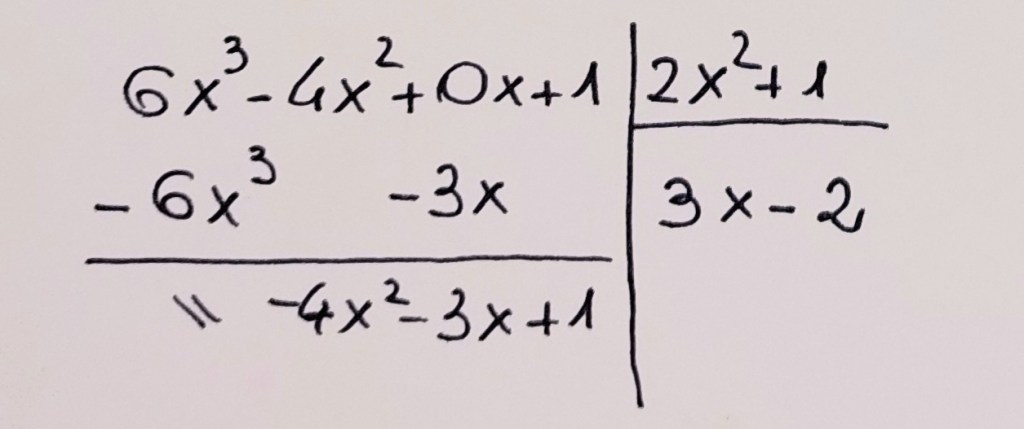 6x³-4x²+0x+1 | 2x²+1
-6x³ -3x | 3x-2
\\ -4x²-3x+1